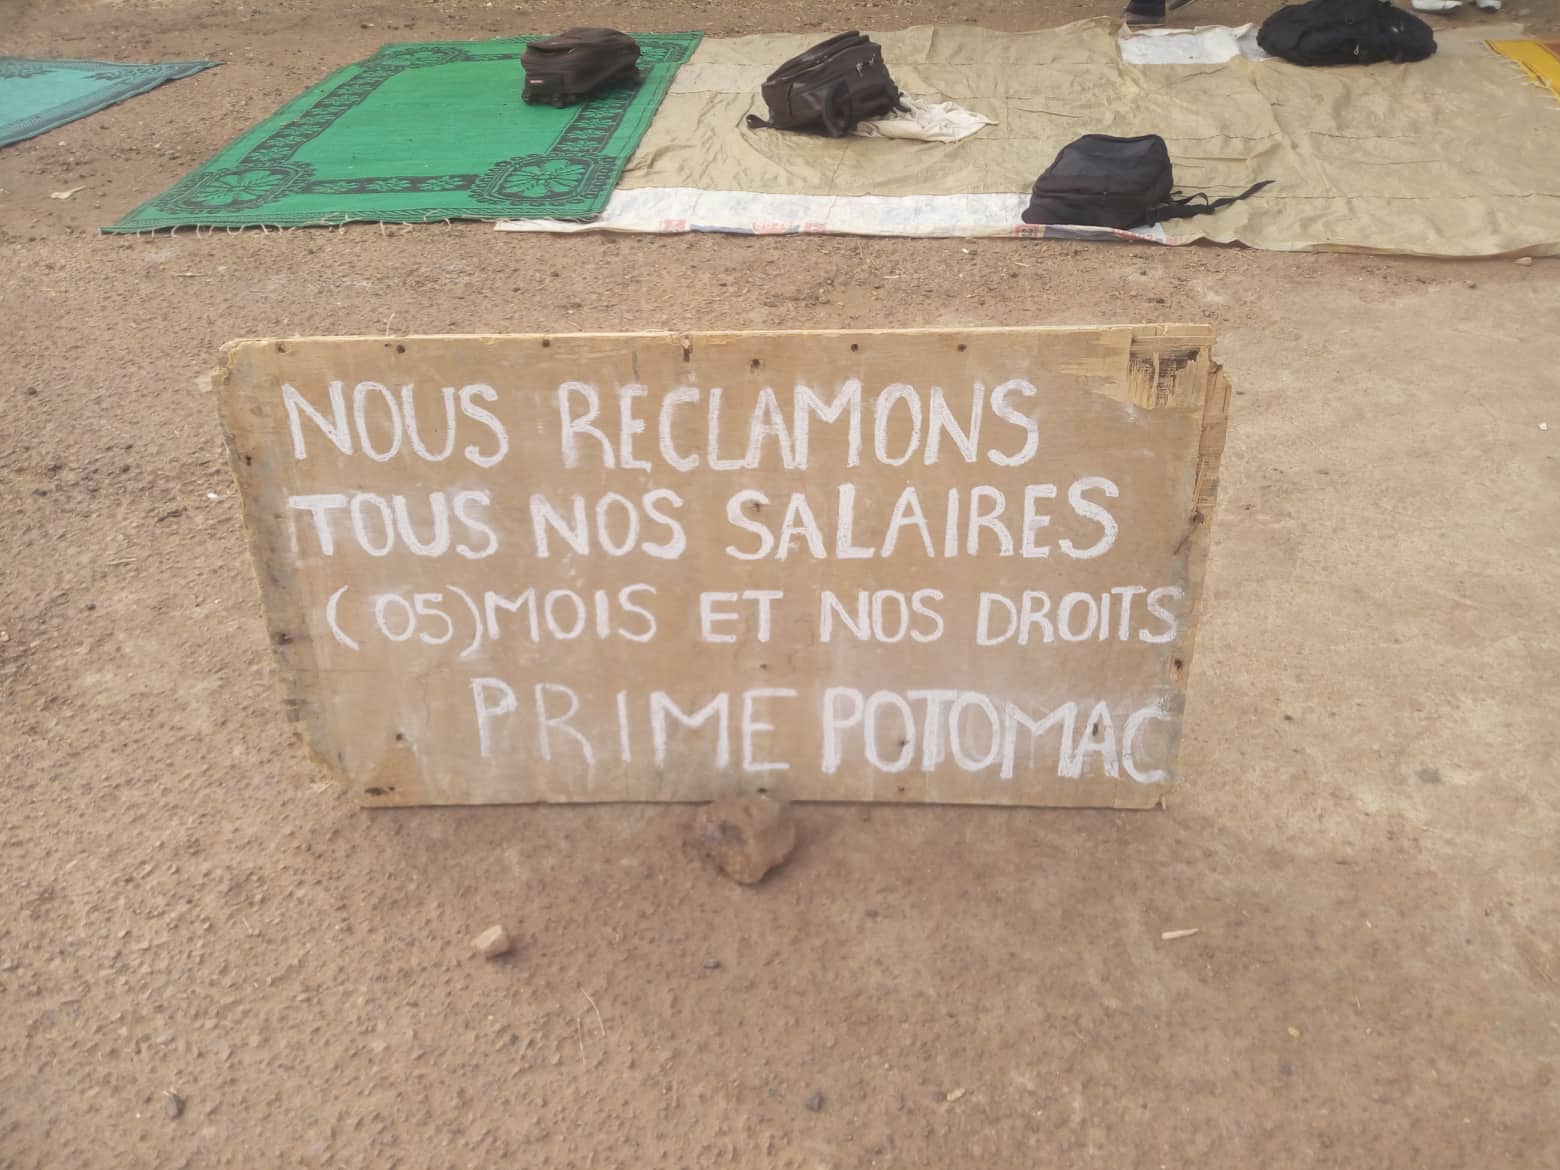 NOUS RECLAMONS
TOUS NOS SALAIRES
(05) MOIS ET NOS DROITS
PRIME POTOMAC